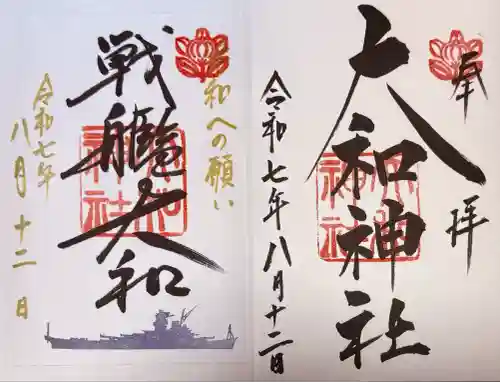 奉拝
大和神社
令和七年八月十二日
和への願い
戦艦大和
令和七年
八月十二日